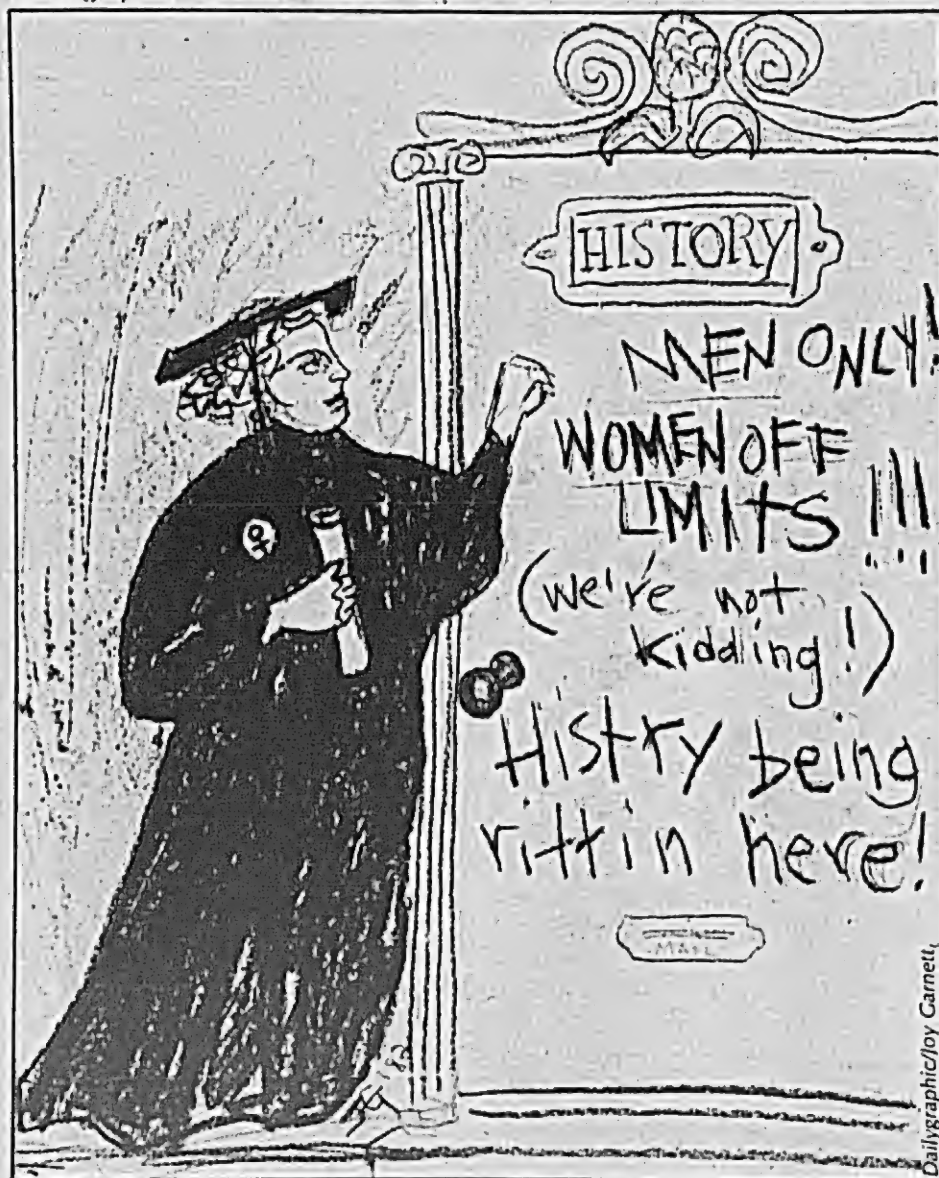 HISTORY
MEN ONLY!
WOMEN OFF
LIMITS!!!
(we're not
kidding!)
Histry being
rittin here!
MAIL
Dailygraphic/Joy Garnett